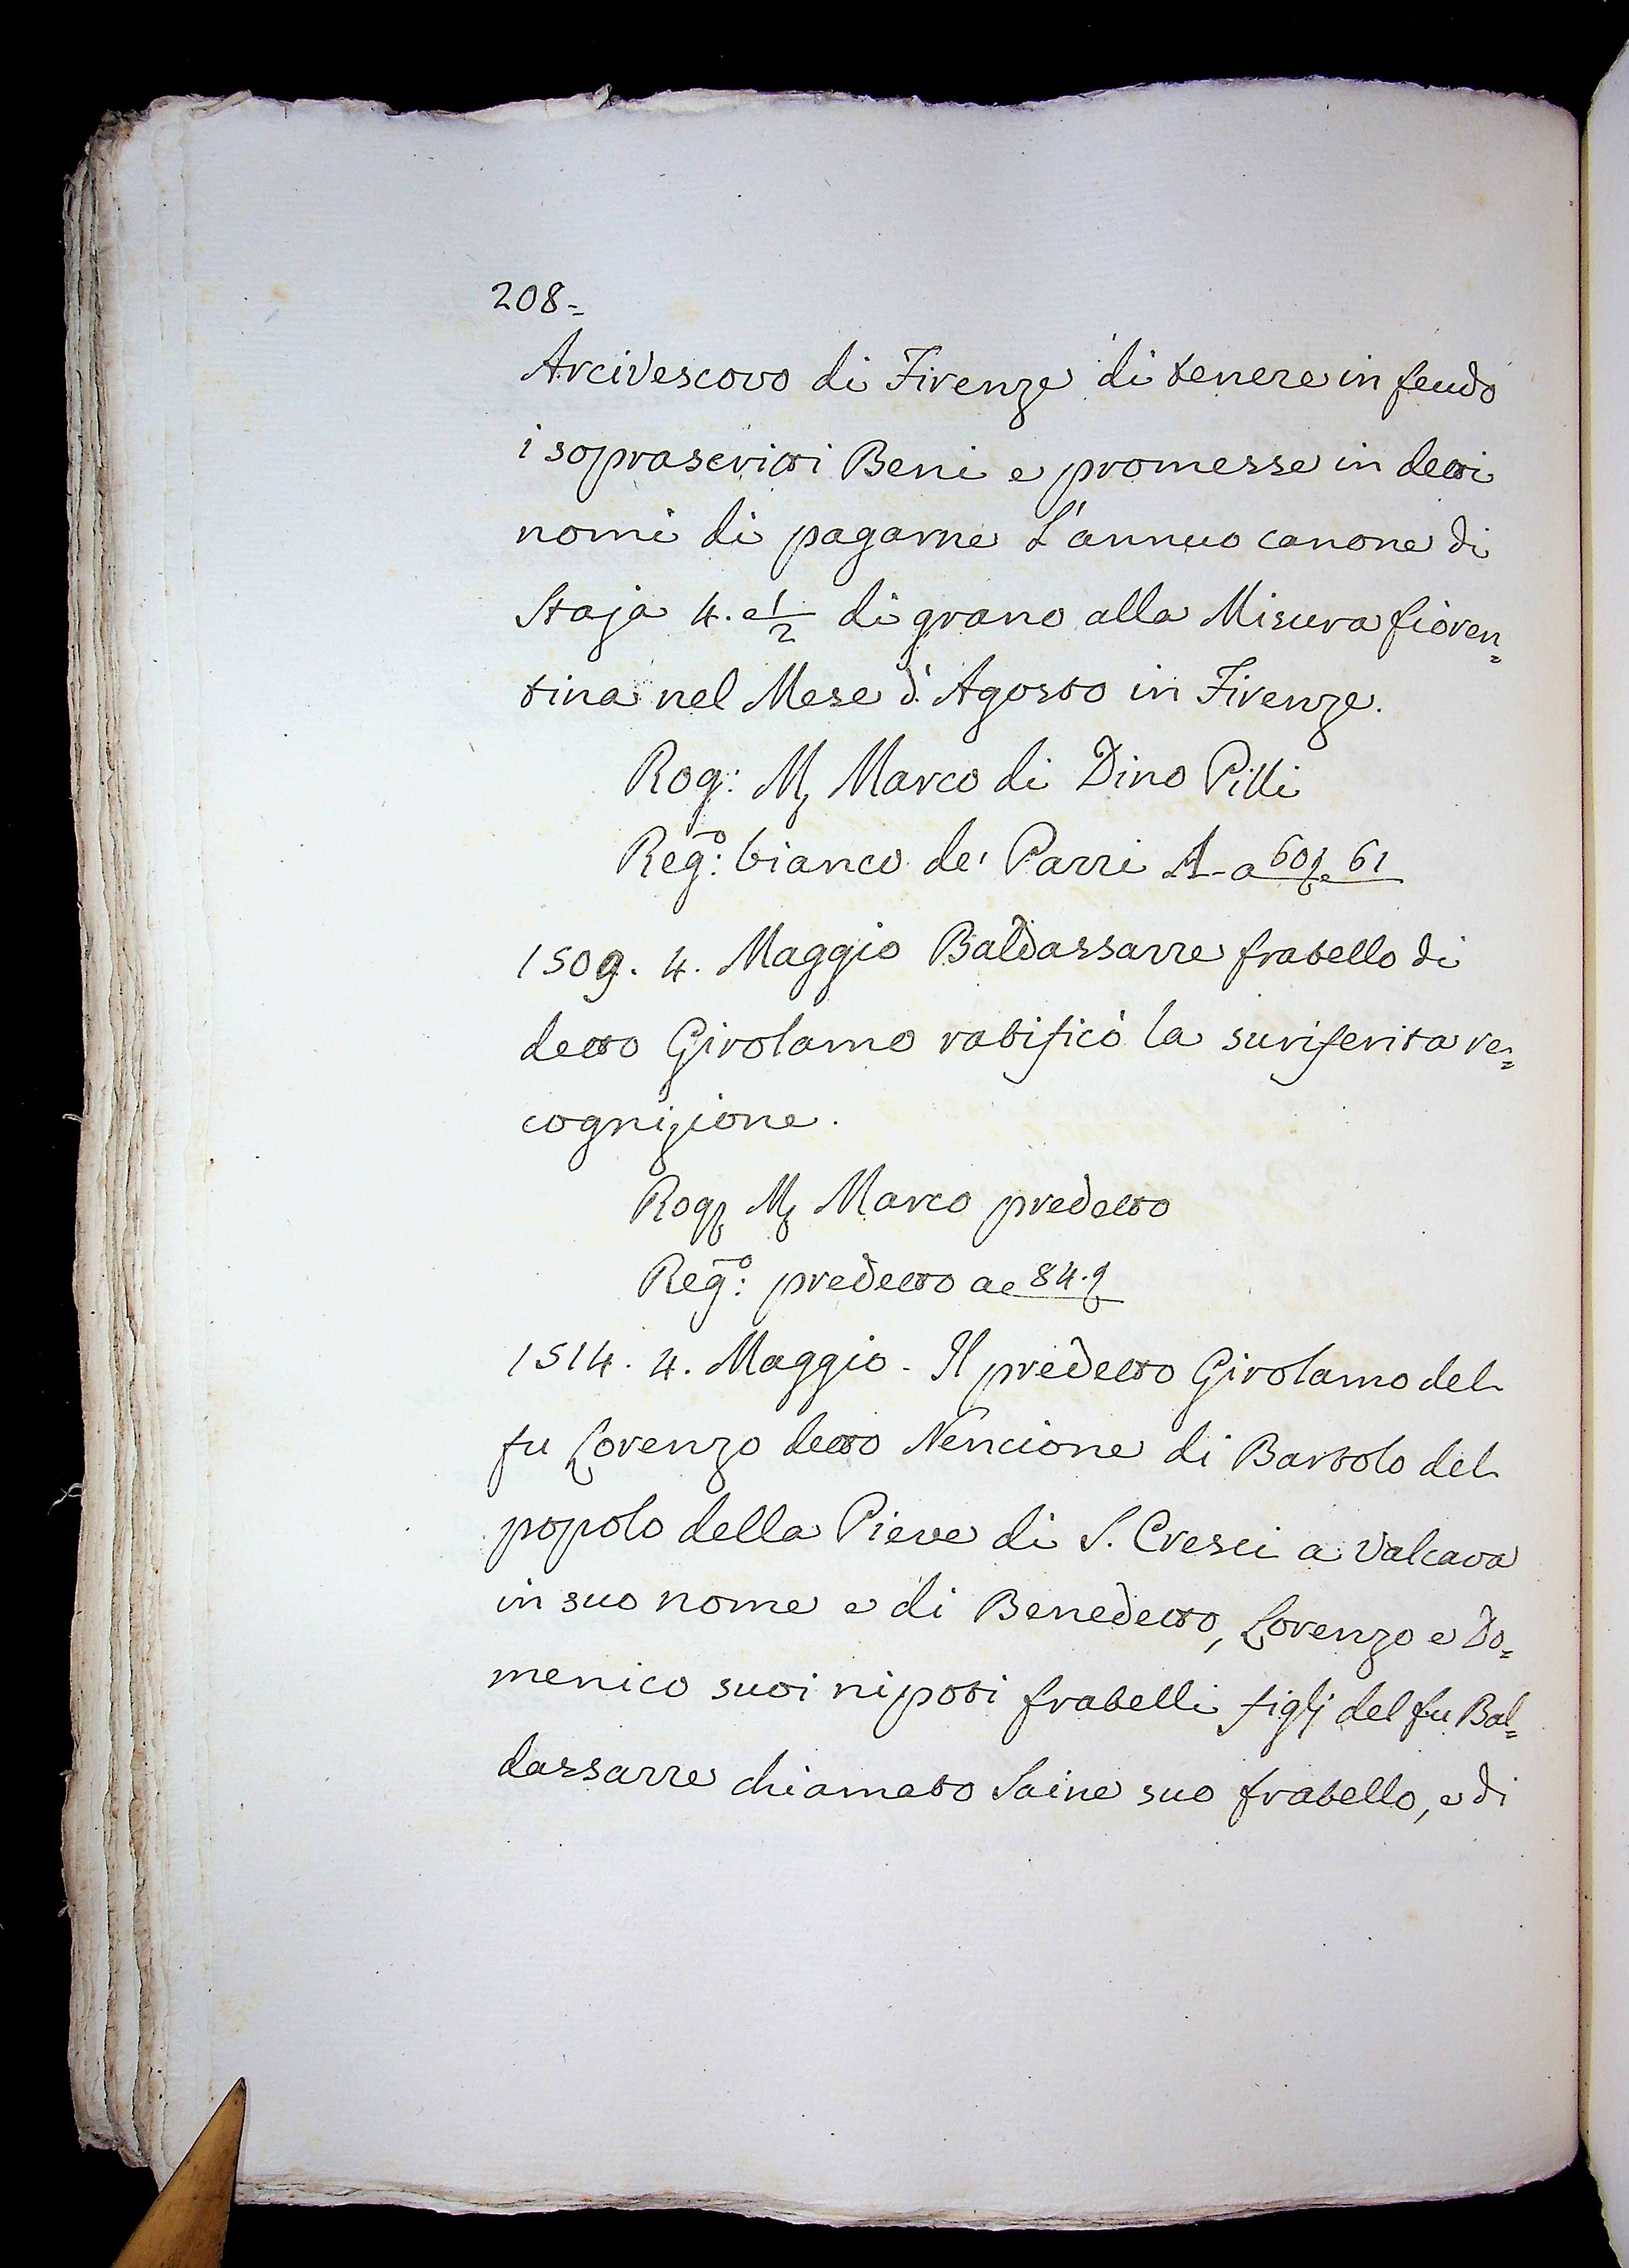 208=
Arcivescovo di Firenze di tenere in feudo
i soprascritti Beni e promesse in detti
nomi di pagarne L'annuo canone di
Staja 4. e 1/2 di grano alla Misura fioren=
tina nel Mese d'Agosto in Firenze.
Rog: M, Marco di Dino Pilli
Reg:o bianco de' Parri A- a 60 e 61
1509. 4. Maggio Baldassarre fratello di
detto Girolamo ratificò la suriferita re=
cognizione.
Rog M Marco predetto
Reg:o predetto ac 84.
1514. 4. Maggio - Il predetto Girolamo del
fu Lorenzo detto Nencione di Bartolo del
popolo della Pieve di S. Cresci a Valcava
in suo nome e di Benedetto, Lorenzo e Do=
menico suoi nipoti fratelli figlj del fu Bal=
dassarre chiamato Saine suo fratello, e di